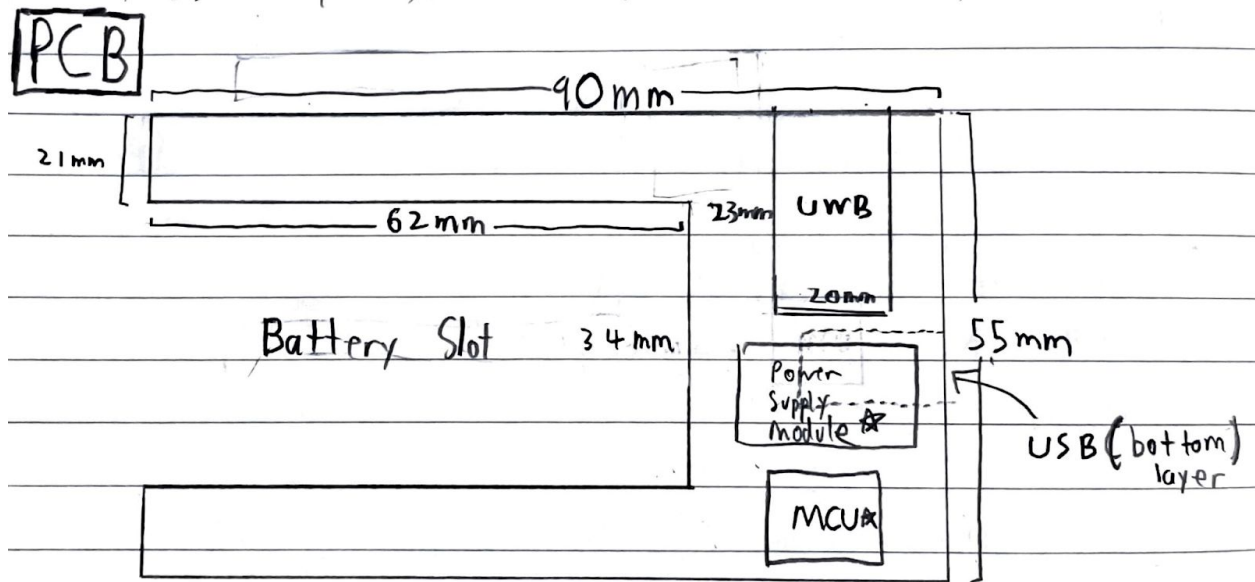 PCB
90mm
21mm
62mm
23mm
UWB
20mm
Battery Slot
34mm
55mm
Power
Supply
Module ☆
USB (bottom)
layer
MCU☆